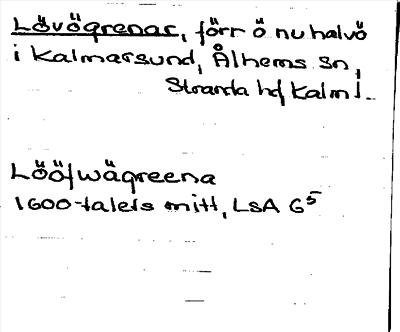 Lövögrenar, förr ö nu halvö
i Kalmarsund, Ålhems sn,
Stranda hd, Kalm l.
Lööfwägreena
1600-talets mitt, LSA G⁵